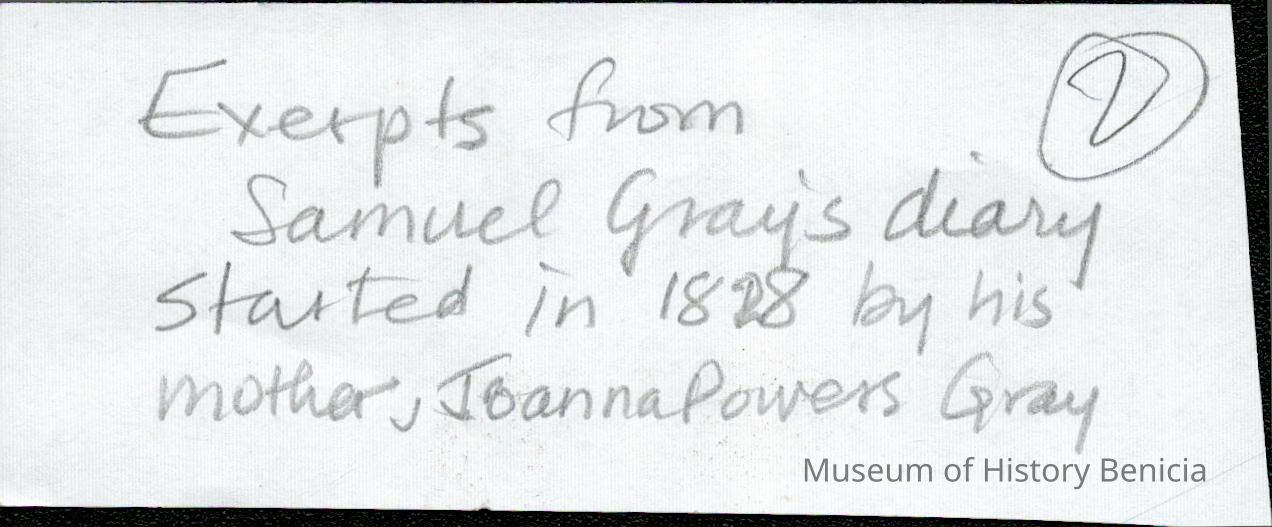 Exerpts from
2
Samuel Gray's diary
started in 1828 by his
mother, Joanna Powers Gray
Museum of History Benicia